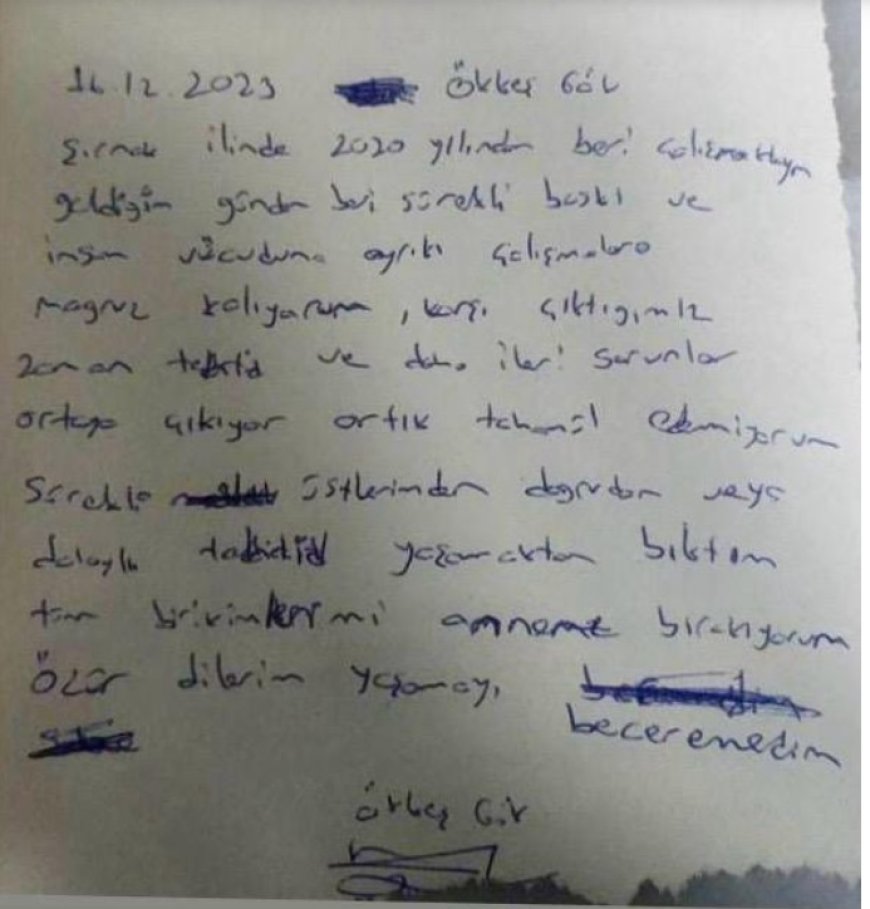 16.12.2023 Ökkeş Gök
Şırnak ilinde 2020 yılından beri çalışmaktayım
geldiğim günden beri sürekli baskı ve
insan vücuduna aykırı çalışmalara
magruz kalıyorum, karşı çıktığımız
zaman tehtid ve daha ileri sorunlar
ortaya çıkıyor artık tahamül edemiyorum
Sürekli üstlerimden dogrudan veya
dolaylı tehtid yaşamaktan bıktım
tüm birikimlerimi anneme bırakıyorum
Özür dilerim yaşamayı
beceremedim
Ökkeş Gök